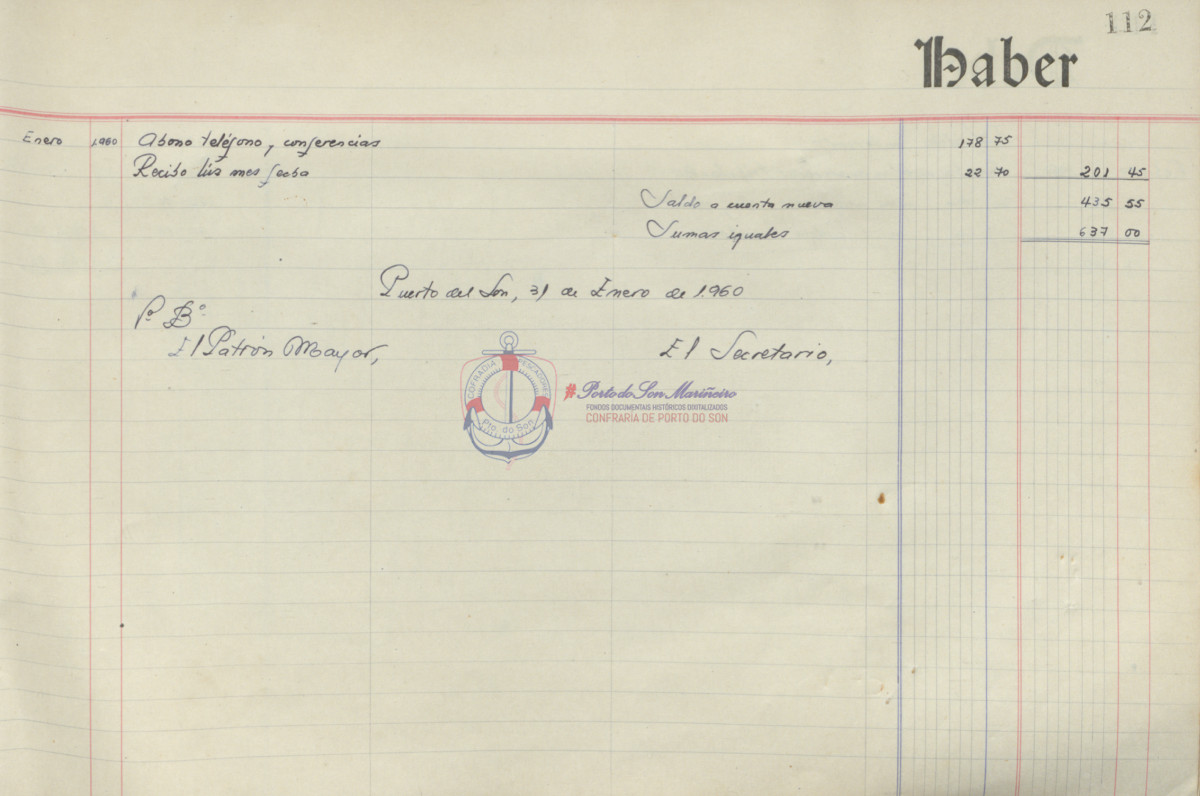 112
Haber
Enero 1.960 Abono teléfono, conferencias 178 75
Recibo luz mes fecha 22 70 201 45
Saldo a cuenta nueva 435 55
Sumas iguales 637 00
Puerto del Son, 31 de Enero de 1.960
Vº Bº
El Patrón Mayor, El Secretario,
COFRADIA PESCADORES
Pto. do Son
#Porto do Son Mariñeiro
FONDOS DOCUMENTAIS HISTÓRICOS DIXITALIZADOS
CONFRARÍA DE PORTO DO SON